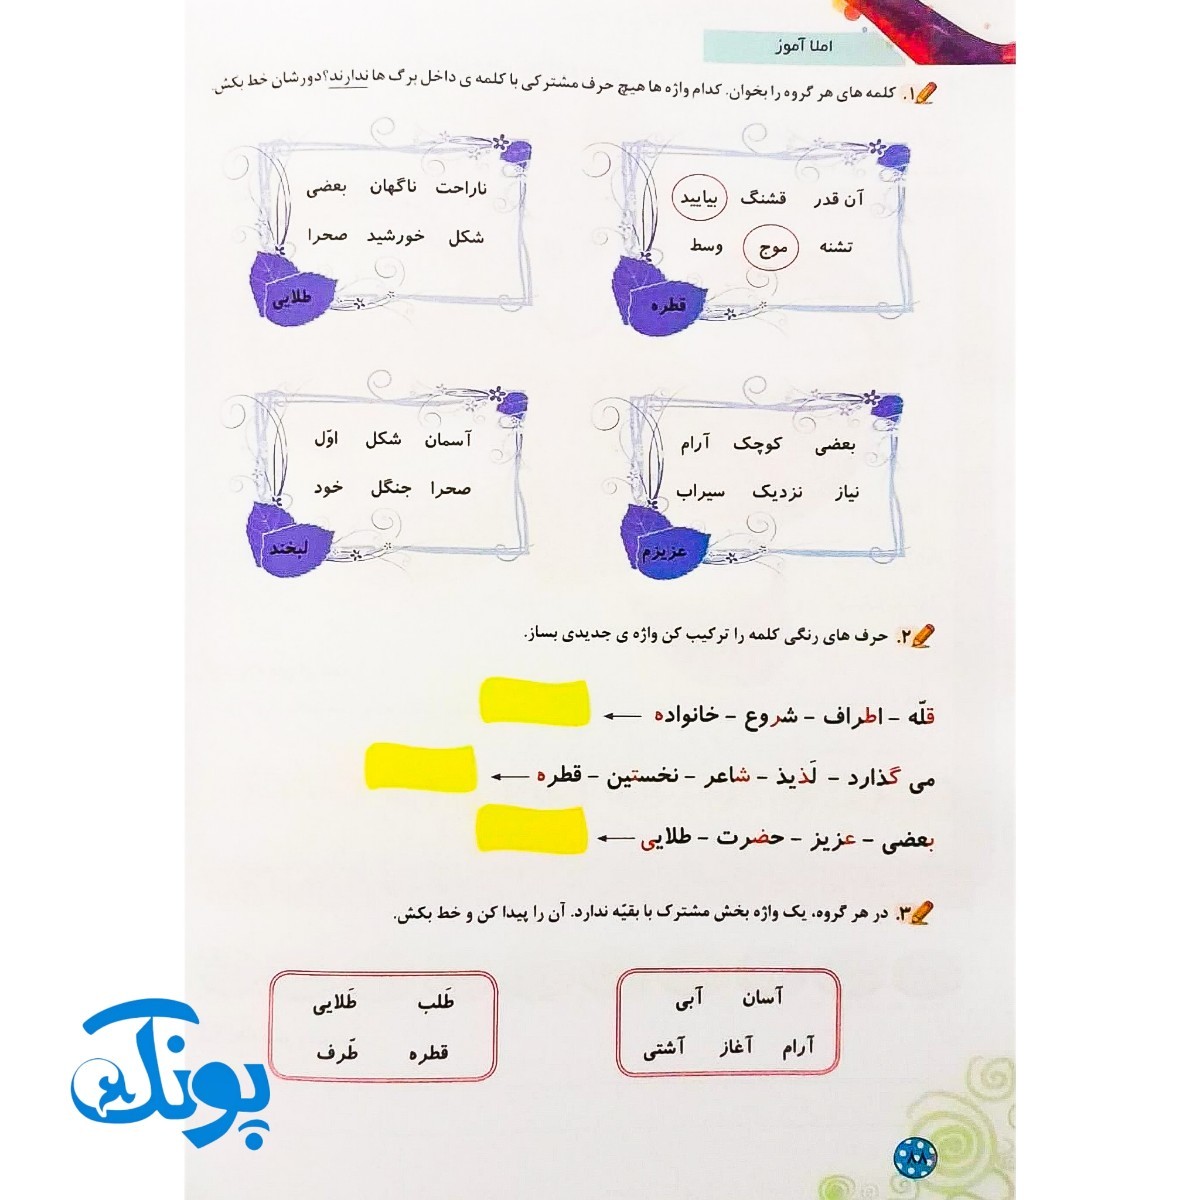 املا آموز
۱. کلمه های هر گروه را بخوان. کدام واژه ها هیچ حرف مشترکی با کلمه ی داخل برگ ها ندارند؟دورشان خط بکش.
آن قدر قشنگ بیایید
تشنه موج وسط
قطره
ناراحت ناگهان بعضی
شکل خورشید صحرا
طلایی
بعضی کوچک آرام
نیاز نزدیک سیراب
عزیزم
آسمان شکل اوّل
صحرا جنگل خود
لبخند
۲. حرف های رنگی کلمه را ترکیب کن واژه ی جدیدی بساز.
قلّه - اطراف - شروع - خانواده ←
می گذارد - لَذیذ - شاعر - نخستین - قطره ←
بعضی - عزیز - حضرت - طلایی ←
۳. در هر گروه، یک واژه بخش مشترک با بقیّه ندارد. آن را پیدا کن و خط بکش.
آسان آبی
آرام آغاز آشتی
طَلب طَلایی
قطره طَرف
۸۸
پونک